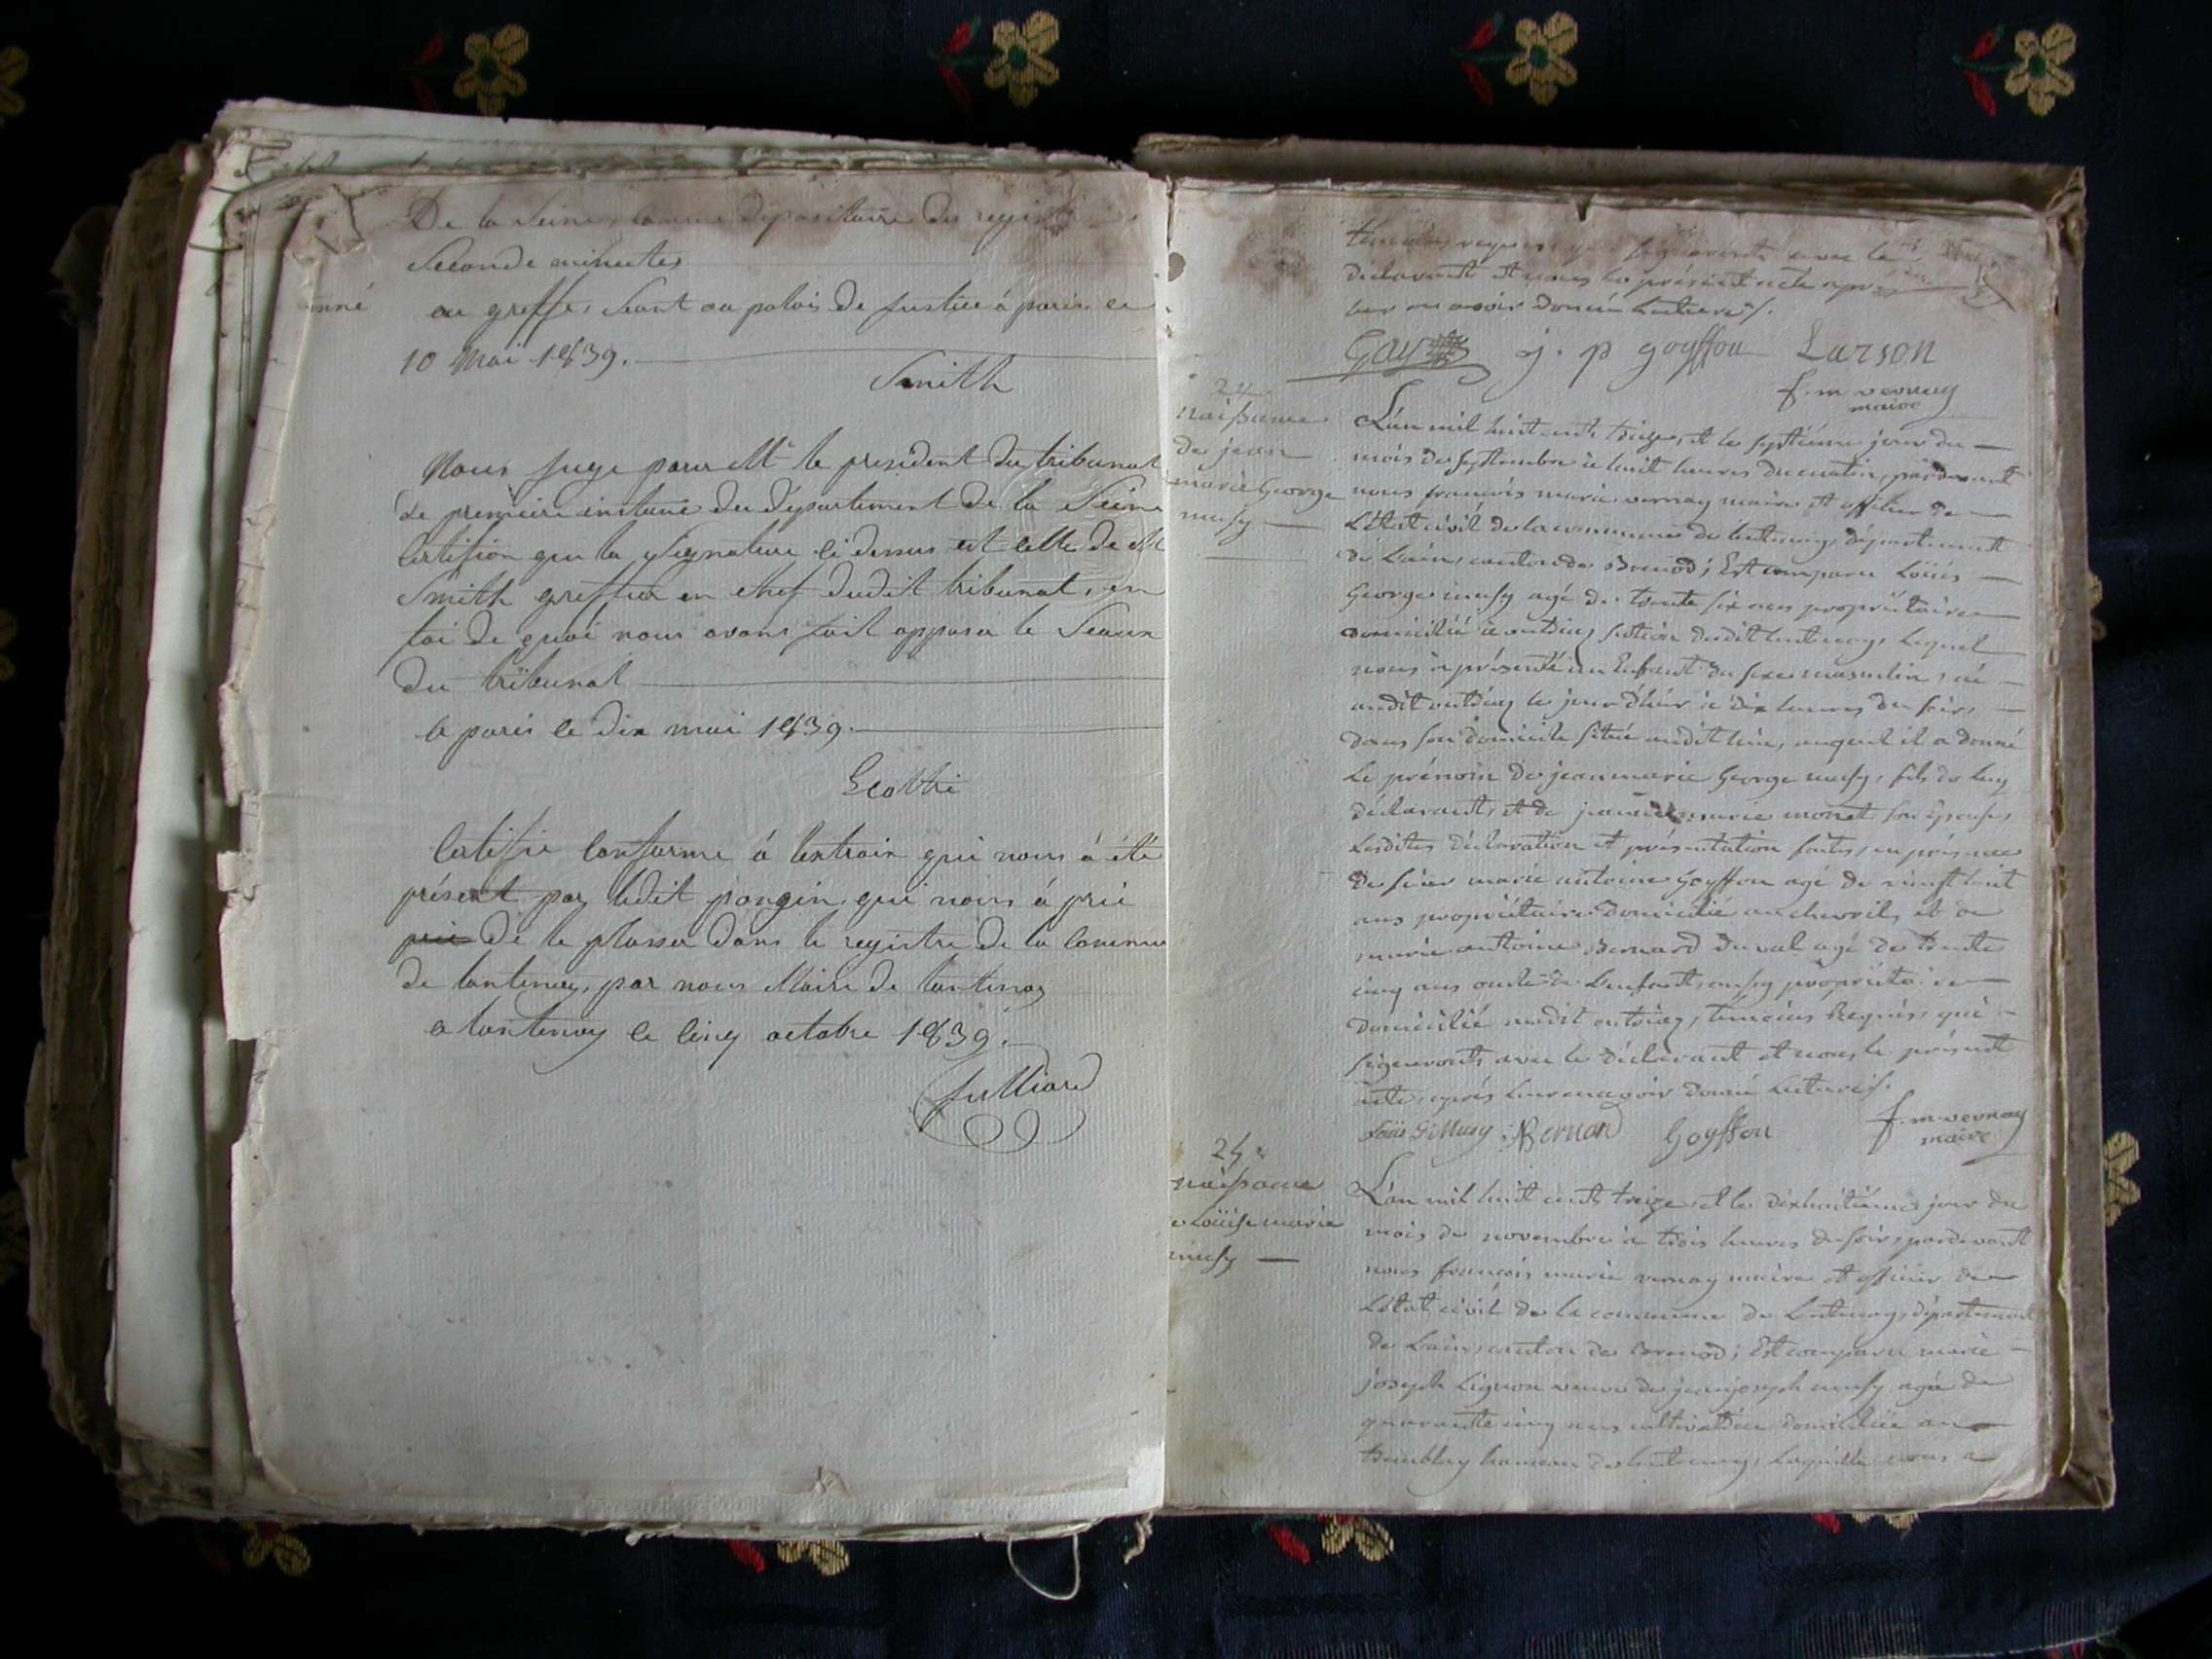 De la Seine, comme depositaire des registres
Seconde minutes
au greffe, Seant au palais de Justice à paris le
10 Mai 1839.
Smith
Nous Juge pour Mr le president du tribunal
de premiere instance du département de la Seine
Certifion que la Signature ci dessus est celle de Mr
Smith greffier en chef dudit tribunal, en
foi de quoi nous avons fait apposer le Seaux
du tribunal
a paris le dix mai 1839.
Certifie conforme á lextrait qui nous à été
présent par ledit pongin qui nous á prié
prié de le plasser dans le registre de la commune
de lantenay, par nous Maire de lantenay
a lantenay le cinq octobre 1839.
Julliard
témoins requis qui signeront avec le
déclarant et nous le présent acte apres
leur en avoir donné lecture /.
Gay j. p goyffon Larson
f. m vernay
maire
24
naissance
de jean
marie George
musy
L'an mil huit cent treize, et le septième jour du
mois de septembre à huit heures du matin, pardevant
nous françois marie vernay maire et officier de
L'état civil de la commune de lentenay, département
de Lain, canton de Brenod; Est comparu Loüis
George musy agé de trente six ans propriétaire
domicilié à outriaz section dudit lentenay, Lequel
nous à présenté un Enfant du sexe masculin, né
audit outriaz le jour d'hier à dix heures du soir,
dans son domicile situé audit lieu, auquel il a donné
Le prénom de jean marie George musy, fils de luy
déclarant, et de jeanne marie monet son Epouse,
Lesdites déclaration et présentation faites, en présence
de sieur marie antoine Goyffon agé de vingt huit
ans propriétaire domicilié au chevril, et de
marie antoine Bernard du val agé de trente
cinq ans oncle de L'enfant, aussy propriétaire
domicilié audit outriaz, témoins Requis, qui
signeront avec le déclarant et nous le présent
acte, après leur en avoir donné Lecture /.
Loüis G Musy Bernard Goyffon
f. m vernay
maire
25
naissance
de Loüise marie
musy
L'an mil huit cent treize, et le dixhuitième jour du
mois de novembre à trois heures du soir, pardevant
nous françois marie vernay maire et officier de
L'état civil de la commune de Lentenay, département
de Lain, canton de Brenod; Est comparu marie
joseph Lignon veuve de jean joseph musy agée de
quarante cinq ans cultivatrice domiciliée au
tremblay hameau de lentenay, Laquelle nous a